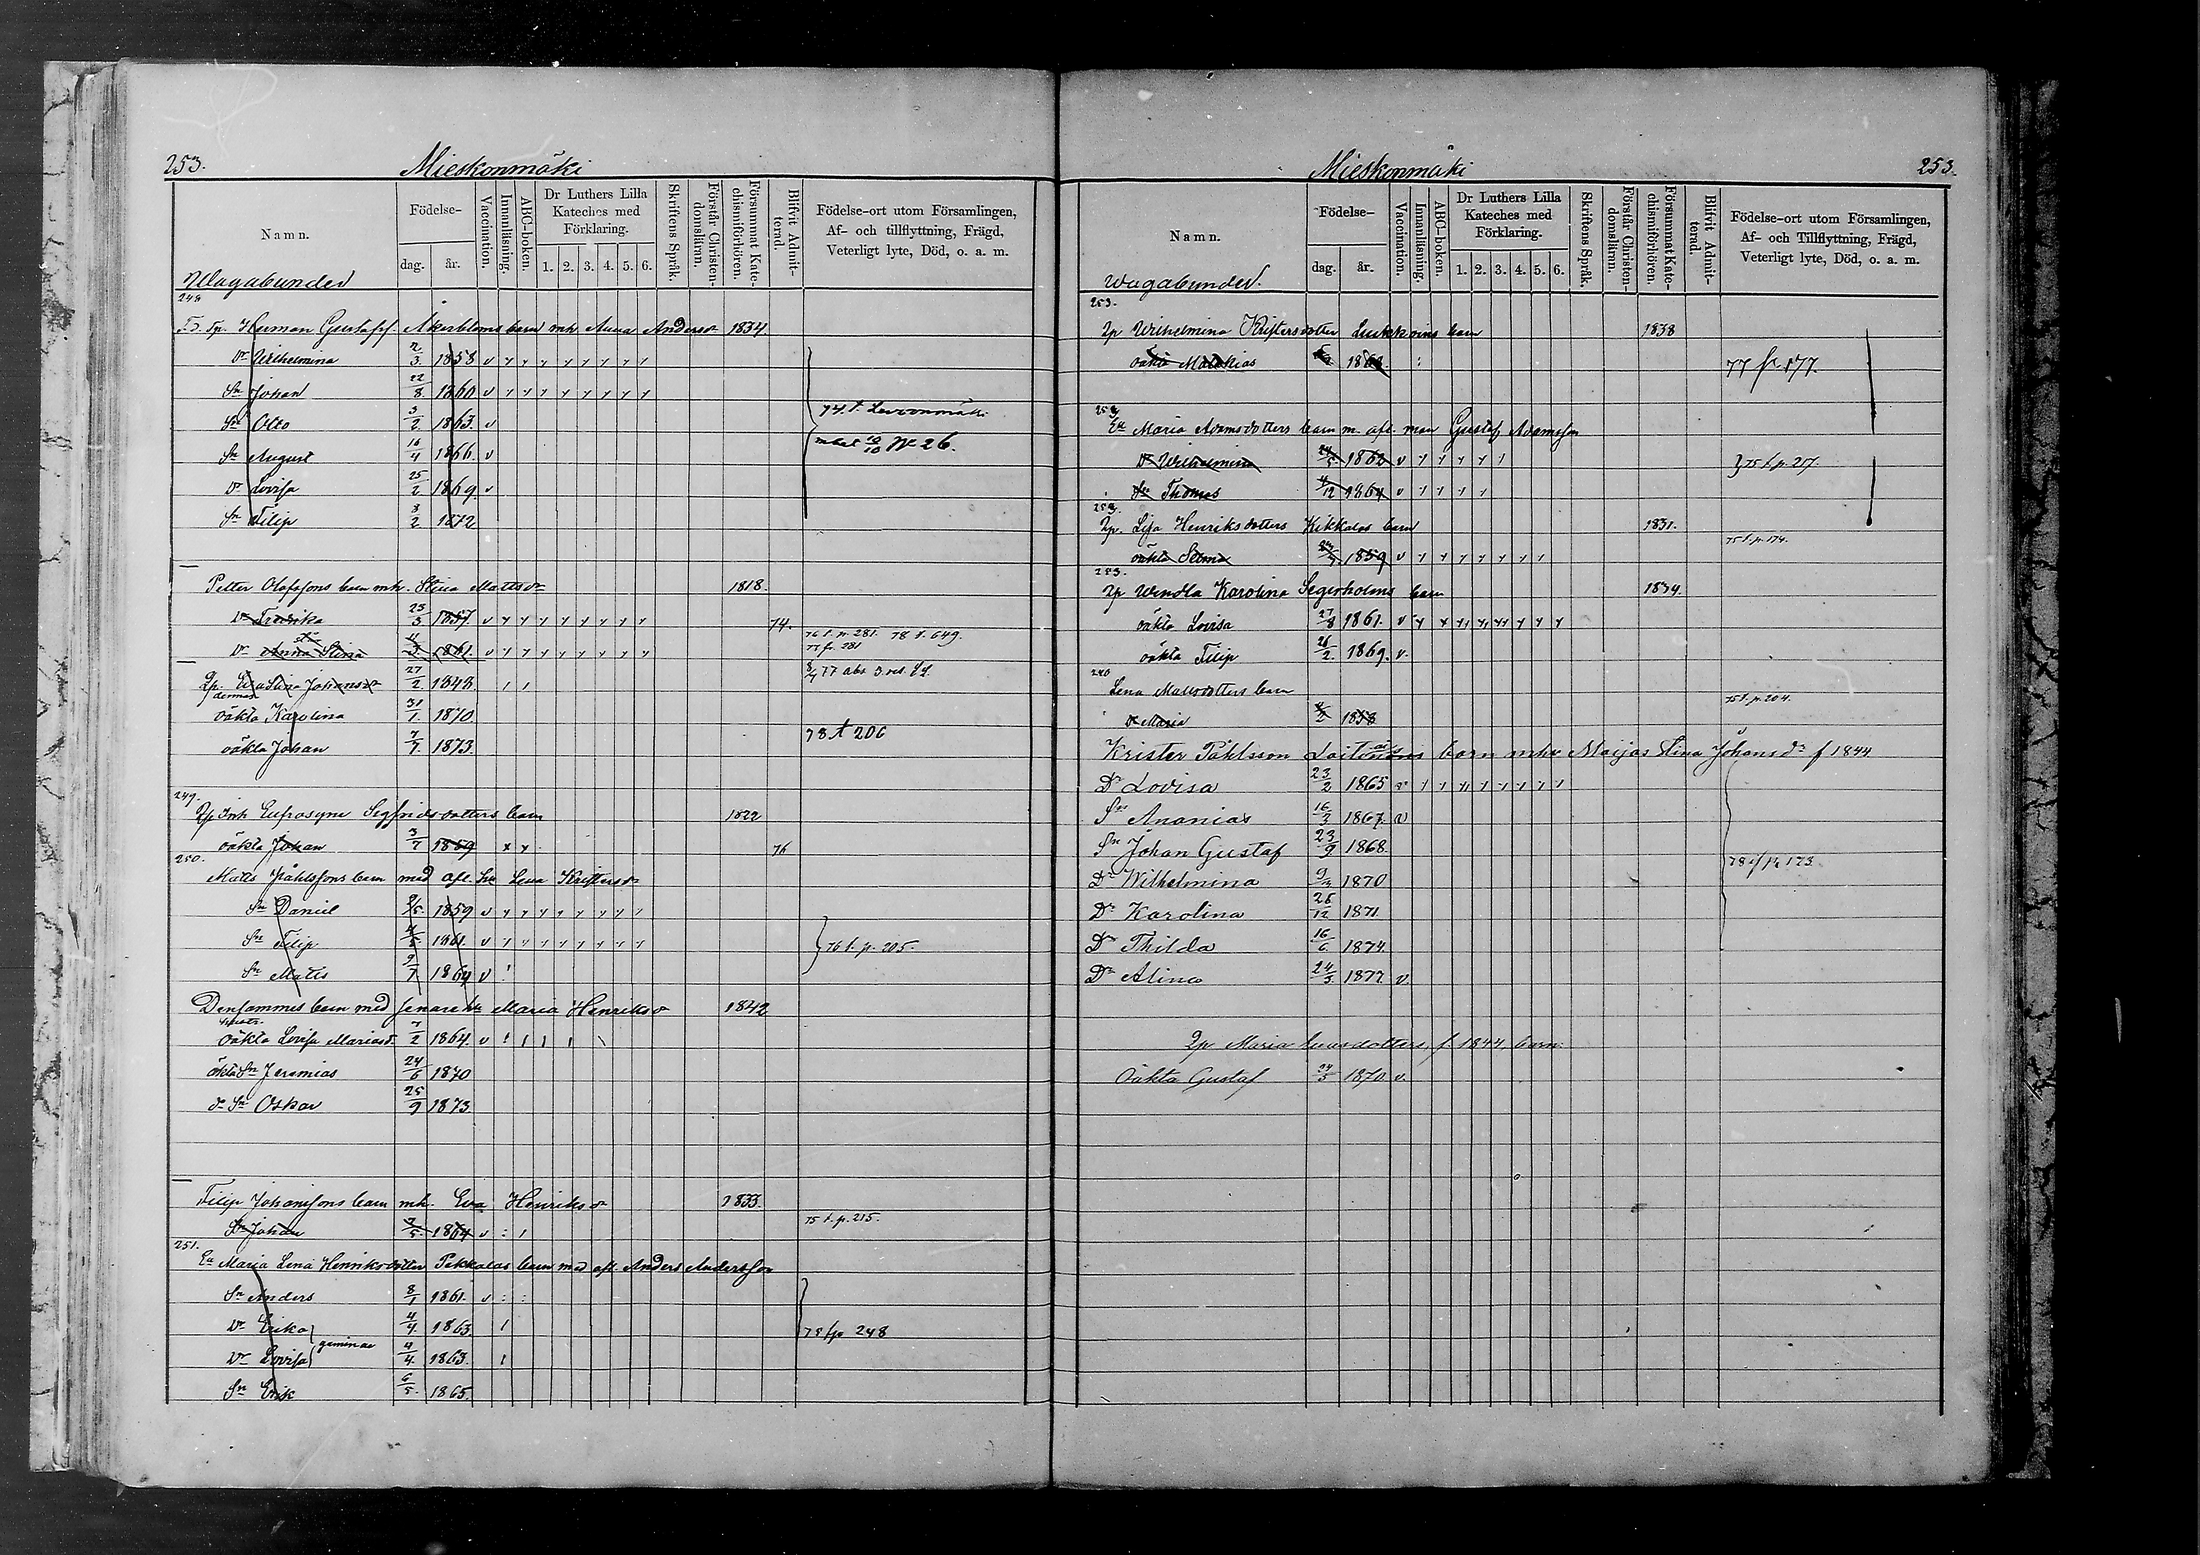 253.
Mieskonmäki
Namn.
Födelse-
dag.
år.
Vaccination.
Innanläsning.
ABC-boken.
Dr Luthers Lilla
Kateches med
Förklaring.
1. 2. 3. 4. 5. 6.
Skriftens Språk.
Förstår Christen-
domsläran.
Försummat Kate-
chismiförhören.
Blifvit Admit-
terad.
Födelse-ort utom Församlingen,
Af- och tillflyttning, Frägd,
Veterligt lyte, Död, o. a. m.
Wagabunder
248
Herman Gustafss. Åkerbloms barn mh Anna Andersdr 1834
Dr Wilhelmina 2/3 1858 v
Sn Johan 22/8 1860 v
Sn Otto 3/2 1863. v
74. t.
Sn August 16/4 1866. v
10/10 No 26.
Dr Lovisa 25/2 1869. v
Sn Filip 3/2 1872
Petter Olofssons barn mh. Stina Mattsdr 1818.
Dr Fredrika 25/3 1857 v 74.
76 t. p. 281. 78 t. 649.
Dr Anna Stina 1861. v
77 fr. 281
Johansdr 27/2 1848.
oäkta Karolina 31/1. 1870
oäkta Johan 7/7 1873.
78 t 206
249.
Inh Eufrosyne Segfridsdotters barn 1822
oäkta Johan 3/7 1859 76
250.
Matts Påhlssons barn med afl. hu Lena Kristersdr
Sn Daniel 1859 v
Sn Filip 4/5 1861. v
76 t. p. 205.
Sn Matts 9/7 1864 v
Densammes barn med senare hu Maria Henriksdr 1842
oäkta Lovisa Mariasdr 7/2 1864. v
äkta Sn Jeremias 24/6 1870
do Sn Oskar 25/9 1873
Filip Johanssons barn mh. Eva Henriksdr 1833.
Sn Johan 1864 v
75 t. p. 215.
251.
Ea Maria Lena Henriksdotter Pekkalas barn med afl. Anders Andersson
Sn Anders 8/1 1861. v
Dr Erika 4/4 1863
geminae
75 t p 248
Dr Lovisa 4/4 1863.
Sn Erik 6/5. 1865.
Mieskonmäki
253.
Namn.
Födelse-
dag.
år.
Vaccination.
Innanläsning.
ABC-boken.
Dr Luthers Lilla
Kateches med
Förklaring.
1. 2. 3. 4. 5. 6.
Skriftens Språk.
Förstår Christen-
domsläran.
Försummat Kate-
chismiförhören.
Blifvit Admit-
terad.
Födelse-ort utom Församlingen,
Af- och Tillflyttning, Frägd,
Veterligt lyte, Död, o. a. m.
Wagabunder.
253.
Qp Wilhelmina Kristersdotter Lukkonins barn 1838
oäkta Malakias
77 fr 177.
Ea Maria Adamsdotters barn m. afl. man Gustaf Adamsson
Dr Wilhelmina 1862 v
75 t. p. 217.
Sn Thomas 1864 v
Qp. Lisa Henriksdotters Kikkalas barn 1831.
75 t. p. 174.
oäkta Selma 1859 v
253.
Qp Wendla Karolina Segerholms barn 1834.
oäkta Lovisa 27/8 1861. v
oäkta Filip 26/2. 1869. v.
240
Lena Mattsdotters barn
75 t. p. 204.
Dr Maria 1858
Krister Påhlsson barn mhu Maijas Stina Johansdr f 1844
Dr Lovisa 23/2 1865
Sn Ananias 16/3 1867. v
Sn Johan Gustaf 23/9 1868.
78 t/p 173
Dr Wilhelmina 1870
Dr Karolina 26/12 1871
Dr Thilda 16/6. 1874.
Dr Alina 24/3. 1877. v.
Qp Maria dotters, f. 1844, barn.
Oäkta Gustaf 1870. v.